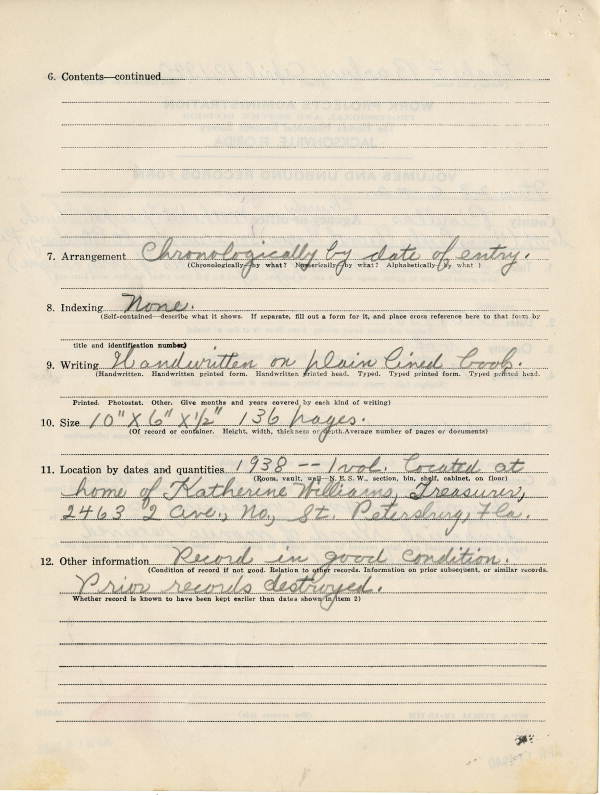 6. Contents—continued
7. Arrangement Chronologically by date of entry.
(Chronologically by what? Numerically by what? Alphabetically by what )
8. Indexing None.
(Self-contained—describe what it shows. If separate, fill out a form for it, and place cross reference here to that form by
title and identification number)
9. Writing Handwritten on plain lined book.
(Handwritten. Handwritten printed form. Handwritten printed head. Typed. Typed printed form. Typed printed head.
Printed. Photostat. Other. Give months and years covered by each kind of writing)
10. Size 10" X 6" X 1/2" 136 pages.
(Of record or container. Height, width, thickness or depth. Average number of pages or documents)
11. Location by dates and quantities 1938 -- 1 vol. Located at
(Room, vault, wall—N. E. S. W., section, bin, shelf, cabinet, on floor)
home of Katherine Williams, Treasurer,
2463 2 Ave., No., St. Petersburg, Fla.
12. Other information Record in good condition.
(Condition of record if not good. Relation to other records. Information on prior subsequent, or similar records.
Prior records destroyed.
Whether record is known to have been kept earlier than dates shown in item 2)